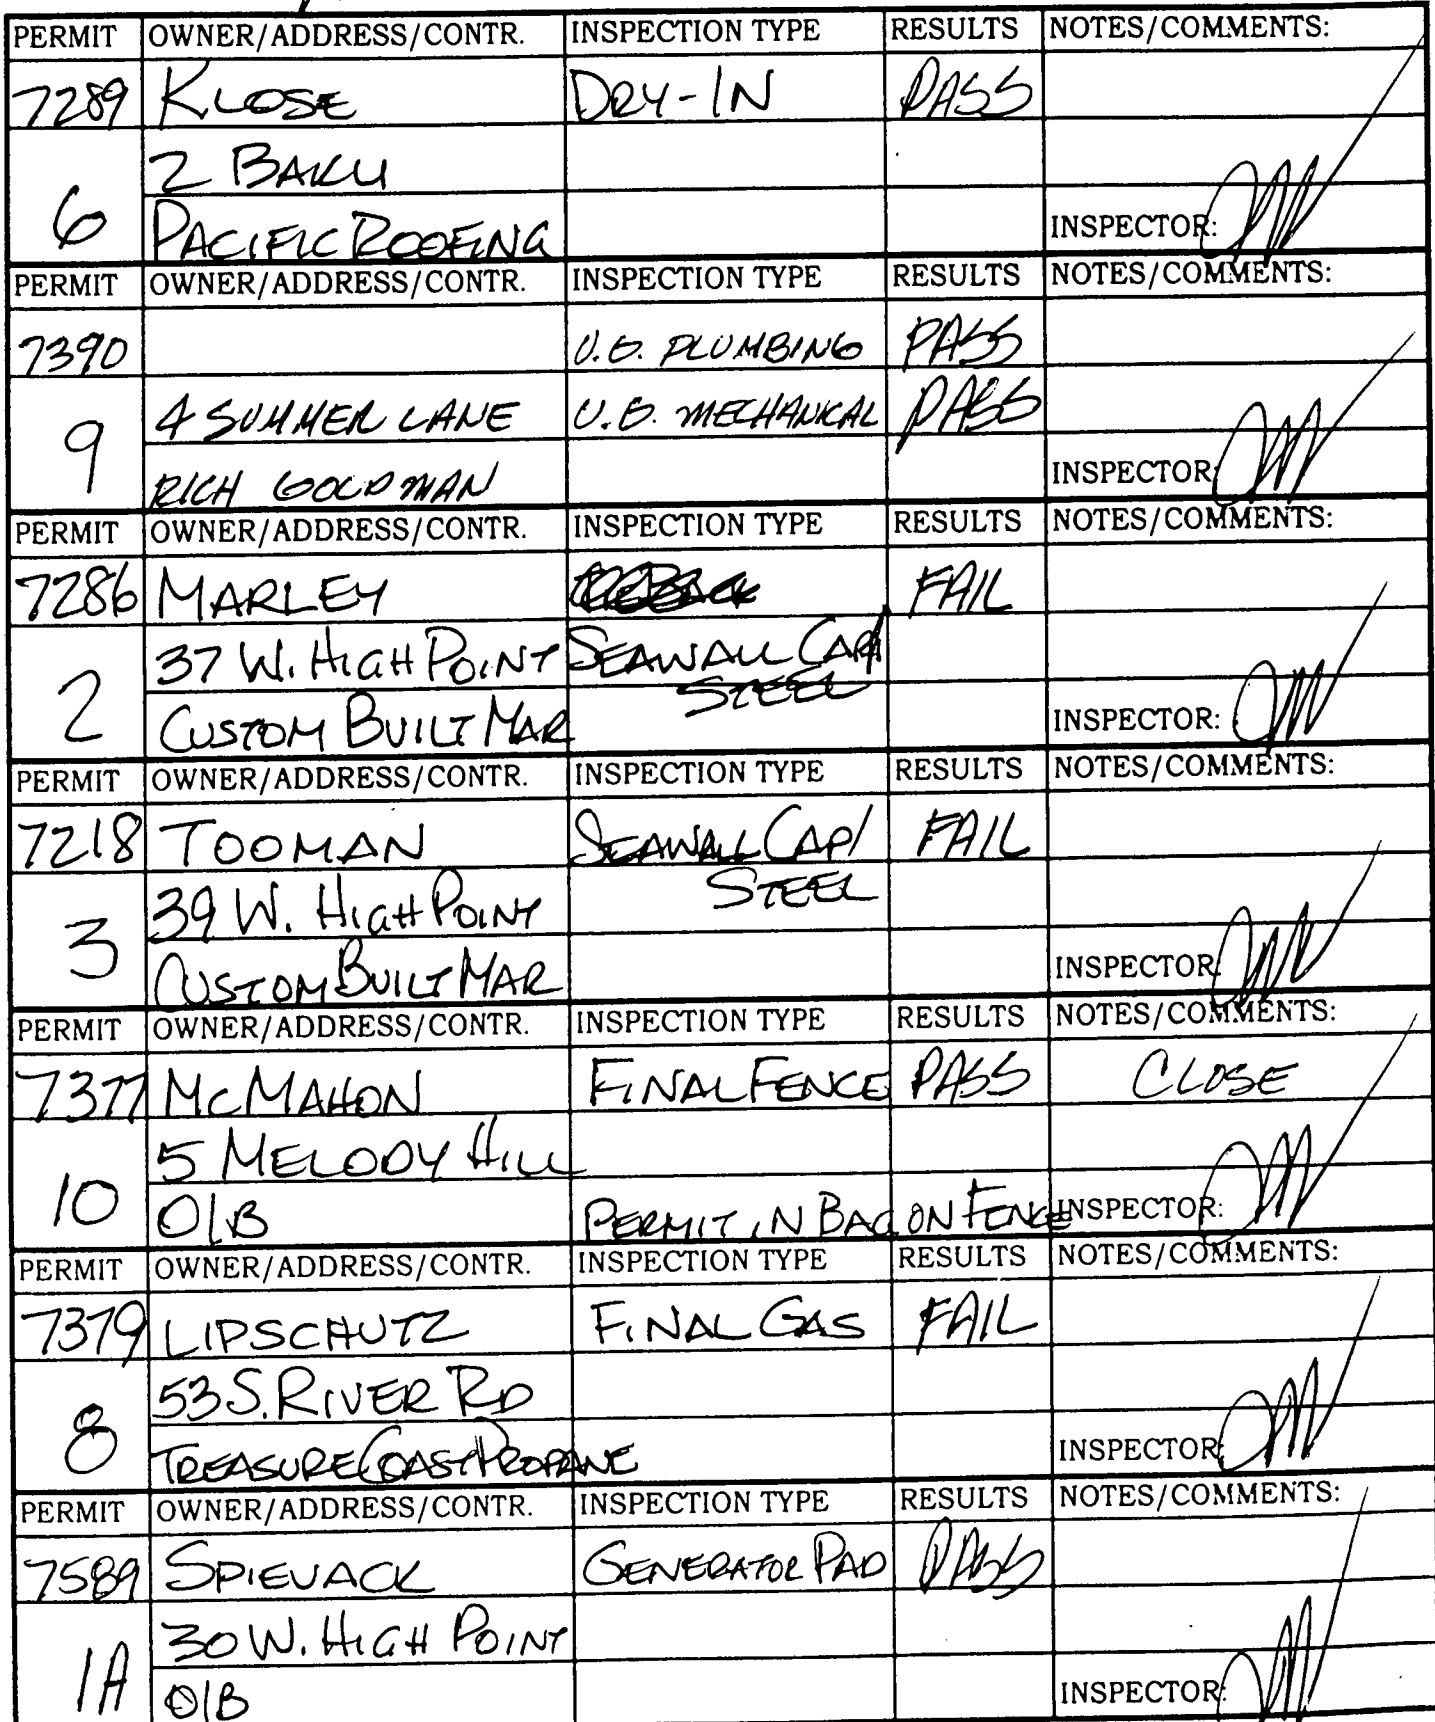 PERMIT OWNER/ADDRESS/CONTR. INSPECTION TYPE RESULTS NOTES/COMMENTS:
7289 KLOSE DRY-IN PASS
2 BAKU
6 PACIFIC ROOFING INSPECTOR:
PERMIT OWNER/ADDRESS/CONTR. INSPECTION TYPE RESULTS NOTES/COMMENTS:
7390 U.G. PLUMBING PASS
4 SUMMER LANE U.G. MECHANICAL PASS
9 RICH GOLDMAN INSPECTOR:
PERMIT OWNER/ADDRESS/CONTR. INSPECTION TYPE RESULTS NOTES/COMMENTS:
7286 MARLEY FAIL
37 W. HIGH POINT SEAWALL CAP/
STEEL
2 CUSTOM BUILT MAR INSPECTOR:
PERMIT OWNER/ADDRESS/CONTR. INSPECTION TYPE RESULTS NOTES/COMMENTS:
7218 TOOMAN SEAWALL CAP/ FAIL
39 W. HIGH POINT STEEL
3 CUSTOM BUILT MAR INSPECTOR:
PERMIT OWNER/ADDRESS/CONTR. INSPECTION TYPE RESULTS NOTES/COMMENTS:
7377 MCMAHON FINAL FENCE PASS CLOSE
5 MELODY HILL
10 O/B PERMIT IN BAG ON FENCE INSPECTOR:
PERMIT OWNER/ADDRESS/CONTR. INSPECTION TYPE RESULTS NOTES/COMMENTS:
7379 LIPSCHUTZ FINAL GAS FAIL
53 S. RIVER RD
8 TREASURE COAST PROPANE INSPECTOR:
PERMIT OWNER/ADDRESS/CONTR. INSPECTION TYPE RESULTS NOTES/COMMENTS:
7589 SPIEVACK GENERATOR PAD PASS
30 W. HIGH POINT
1A O/B INSPECTOR: